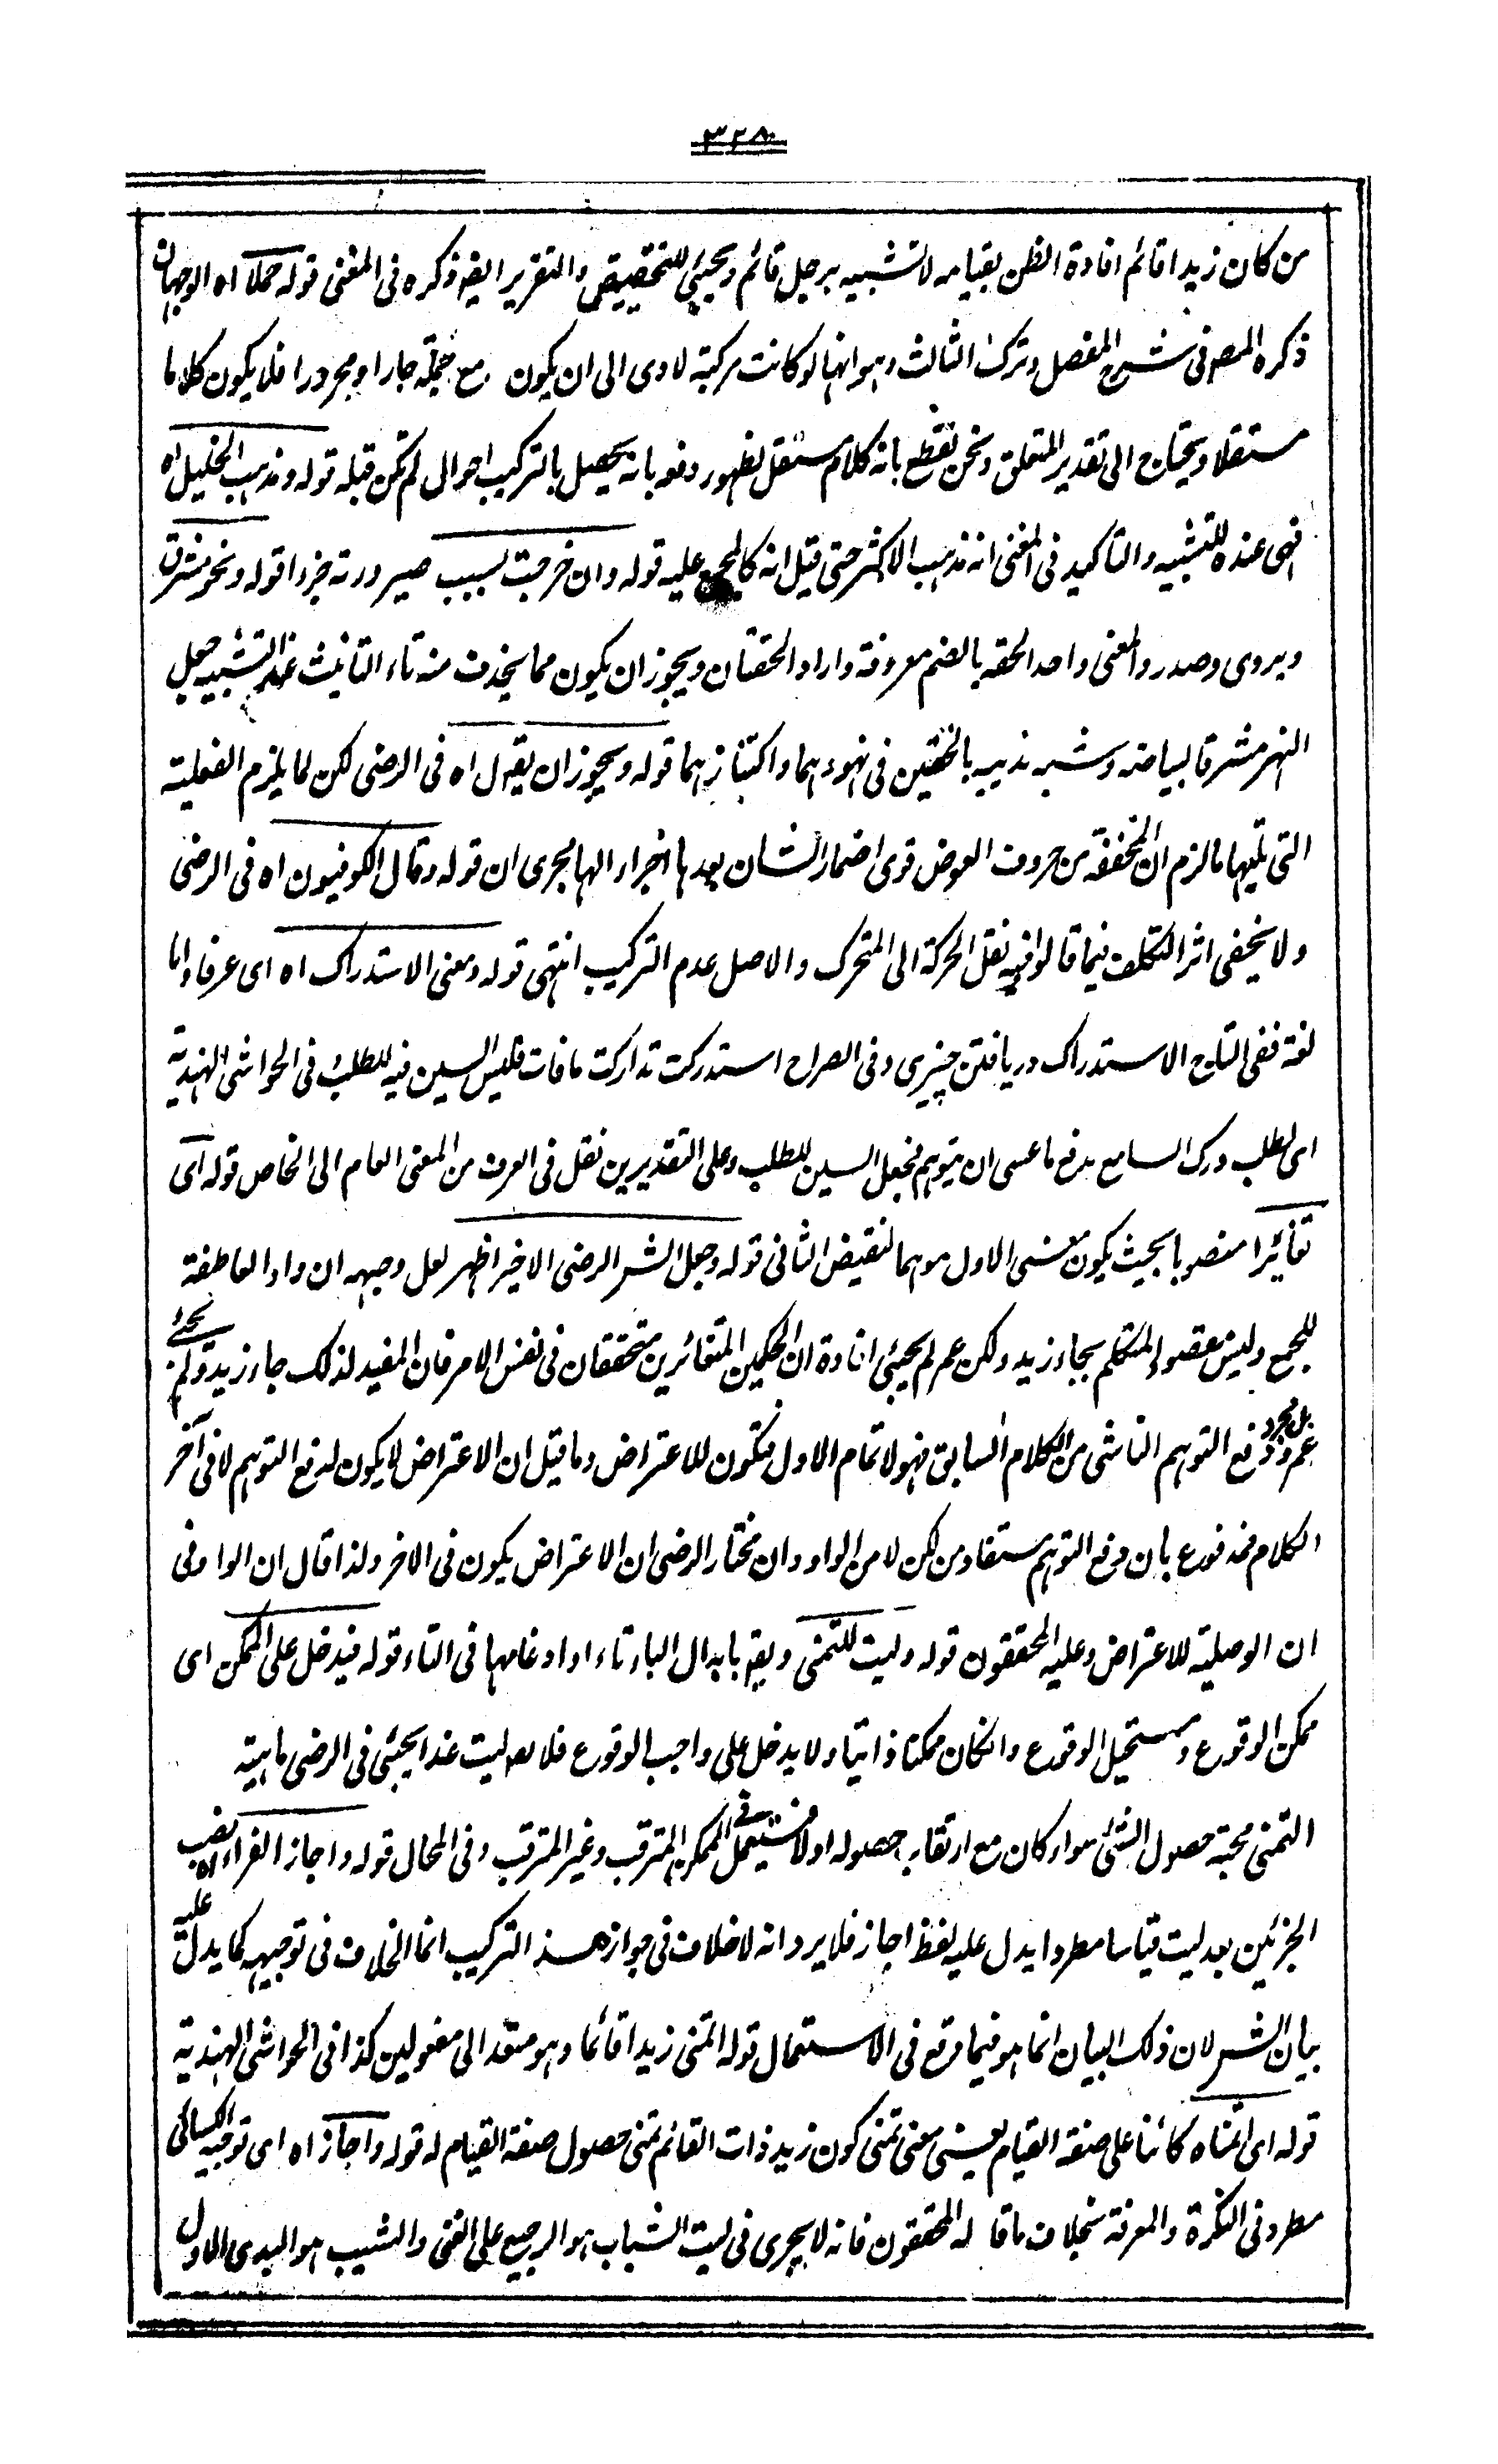 ٣٢٨
من كان زيدا قائم افادة الظن بقيامه لا تشبيه برجل قائم ويجيئ للتحقيق والتقرير ايضا ذكره فى المغنى قوله حملا اه الوجهان
ذكره المص فى شرح المفصل وترك الثالث وهو انها لو كانت مركبة لادى الى ان يكون مع جملة جارا ومجرورا فلا يكون كلاما
مستقلا ويحتاج الى تقدير المتعلق ونحن نقطع بانه كلام مستقل لظهور دفعه بانه يحصل بالتركيب احوال لم تكن قبله قوله ومذهب الخليل اه
فهى عنده للتشبيه والتاكيد فى المغنى انه مذهب الاكثر حتى قيل انه كالمجمع عليه قوله وان خرجت بسبب صيرورته جزءا قوله ونحر مشرق
ويروى وصدر والمغنى واحد الحقه بالضم معروفة واراد الحقتان ويجوز ان يكون مما يحذف منه تاء التانيث عند التشبيه جعل
النهر مشرقا لبياضه وشبه ثدييه بالحقتين فى نهودهما واكتنازهما قوله ويجوز ان يقال اه فى الرضى لكن لما يلزم الفعلية
التى تليها ما لزم ان المخففة من حروف العوض قوى اضمار الشان بعدها اجراء لها مجرى ان قوله وقال الكوفيون اه فى الرضى
ولا يخفى اثر التكلف فيما قالوا فيه نقل الحركة الى المتحرك والاصل عدم التركيب انتهى قوله ومعنى الاستدراك اه اى عرفا واما
لغة ففى التاج الاستدراك دريافتن چيزى وفى الصراح استدركت تداركت ما فات فليس السين فيه للطلب فى الحواشى الهندية
اى لطلب درك السامع بدفع ما عسى ان يتوهم فجعل السين للطلب وعلى التقديرين نقل فى العرف من المعنى العام الى الخاص قوله اى
تغائرا منصوبا بحيث يكون معنى الاول موهما لنقيض الثانى قوله وجعل الشر الرضى الاخير اظهر لعل وجهه ان واو العاطفة
للجمع وليس مقصود المتكلم بجاء زيد ولكن عمر لم يجيئ افادة ان الحكمين المتغائرين متحققان فى نفس الامر فان المفيد لذلك جاء زيد ولم يجئ
عمرو بل مجرد دفع التوهم الناشى من الكلام السابق فهو لاتمام الاول فتكون للاعتراض وما قيل ان الاعتراض لا يكون لدفع التوهم لا فى آخر
الكلام فمدفوع بان دفع التوهم مستفاد من لكن لا من الواو وان مختار الرضى ان الاعتراض يكون فى الاخر ولذا قال ان الواو فى
ان الوصلية للاعتراض وعليه المحققون قوله وليت للتمنى ويقر بابدال الباء تاء او ادغامها فى التاء قوله فيدخل على الممكن اى
ممكن الوقوع ومستحيل الوقوع وانكان ممكنا ذاتيا ولا يدخل على واجب الوقوع فلا يقه ليت غدا يجئى فى الرضى ماهيته
التمنى محبة حصول الشئ سواء كان مع ارتقاب حصوله اولا فيستعمل فى الممكن المترقب وغير المترقب وفى المحال قوله واجاز الفراء نصب اه
الجزئين بعد ليت قياسا مطردا يدل عليه لفظ اجاز فلا يرد انه لا خلاف فى جواز هذا التركيب انما الخلاف فى توجيهه كما يدل عليه
بيان الشر لان ذلك البيان انما هو فيما وقع فى الاستعمال قوله اتمنى زيدا قائما وهو متعد الى مفعولين كذا فى الحواشى الهندية
قوله اى اتمناه كائنا على صفة القيام يعنى معنى تمنى كون زيد ذات القائم تمنى حصول صفة القيام له قوله واجاز اه اى توجيه الكسائى
مطرد فى النكرة والمعرفة بخلاف ما قاله المحققون فانه لا يجرى فى ليت الشباب هو الرجيع على الفتى والشيب هو البدى الاول